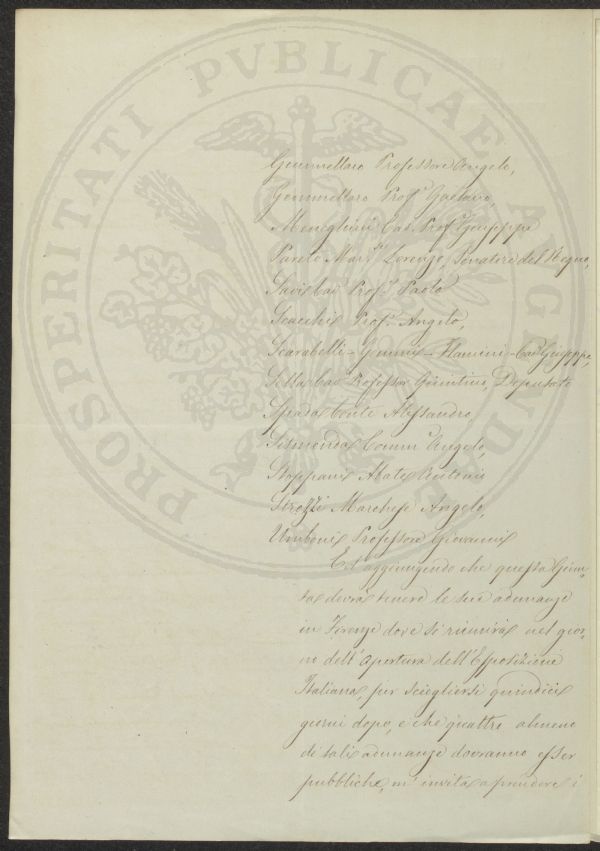 PROSPERITATI PVBLICAE AVGENDAE
Gemmellaro Professore Angelo,
Gemmellaro Prof.r Gaetano,
Meneghini Cav. Prof. Giuseppe
Pareto Mar.se Lorenzo, Senatore del Regno,
Savi Cav. Prof.r Paolo
Scacchi Prof.r Angelo,
Scarabelli-Gommi-Flamini-Cav. Giuseppe,
Sella Cav. Professor Quintino, Deputato
Spada Conte Alessandro
Sismonda Comm.r Angelo,
Stoppani Abate Antonio
Strozzi Marchese Angelo,
Omboni Professore Giovanni
Ed aggiungendo che questa Giun-
ta dovrà tenere le sue adunanze
in Firenze dove si riunirà nel gior-
no dell'Apertura dell'Esposizione
Italiana, per sciogliersi quindici
giorni dopo, e che quattro almeno
di tali adunanze dovranno esser
pubbliche, m'invita a prendere i